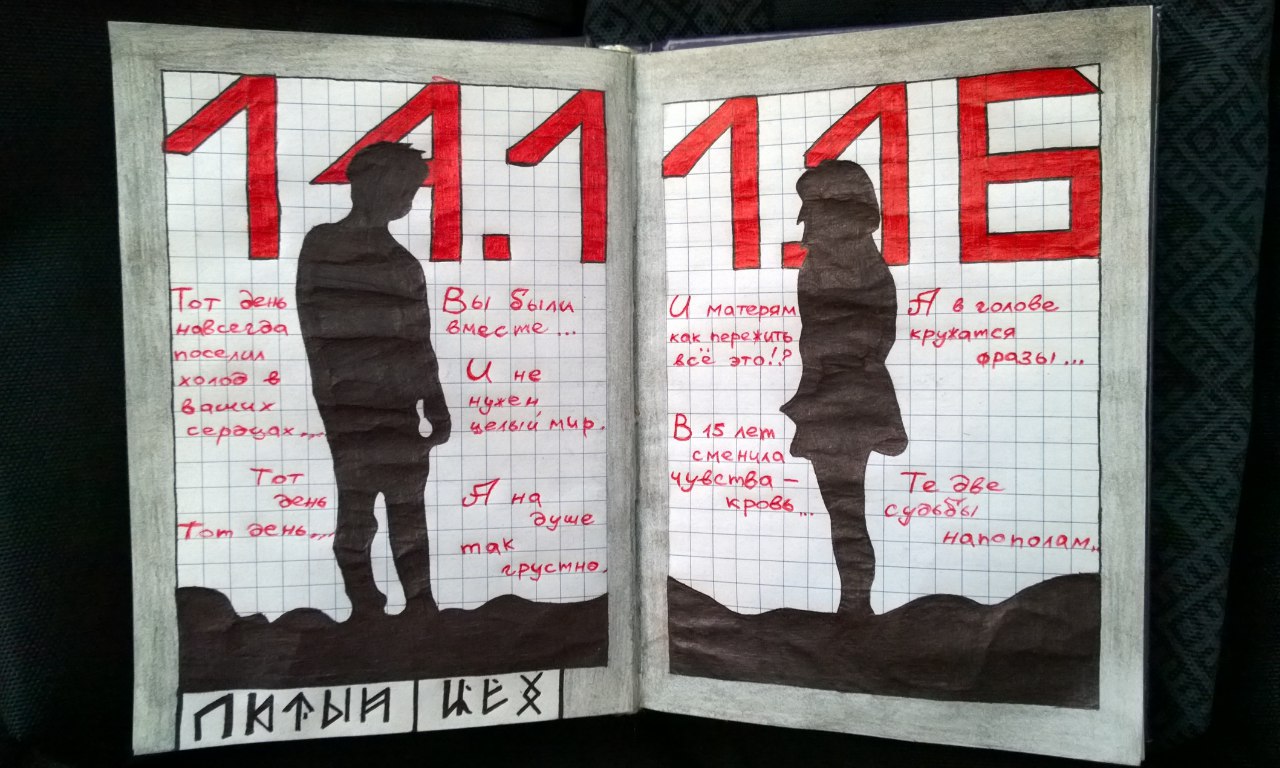 14.11.16
Тот день
навсегда
поселил
холод в
ваших
сердцах...
Тот
день
Тот день...
Вы были
вместе...
И не
нужен
целый мир.
А на
душе
так
грустно.
И матерям
как пережить
всё это!?
В 15 лет
сменила
чувства –
кровь...
А в голове
кружатся
фразы...
Те две
судьбы
напополам..
ПЯТЫЙ ЦЕХ